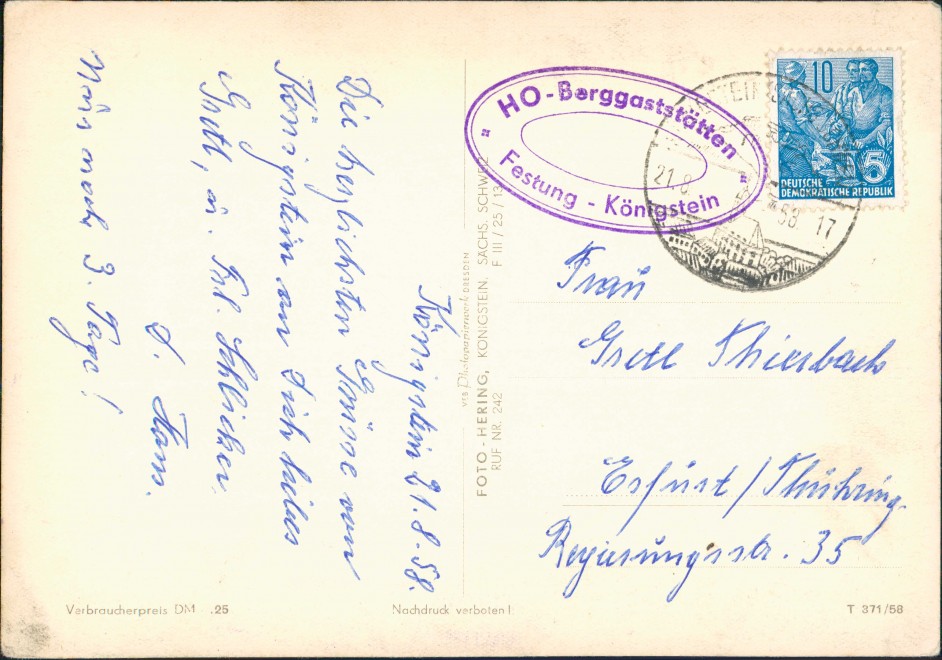 Königstein 21.8.58.
Die herzlichsten Grüsse vom
Königstein an Dich liebes
Gretl, u. Frl. Schlicker.
D. Hans.
Noch 3. Tage!
HO-Berggaststätten
Festung - Königstein
21.8.58. 17
10
5
DEUTSCHE
DEMOKRATISCHE REPUBLIK
Frau
Gretl Thierbach
Erfurt/Thühring.
Regierungsstr. 35
VEB Photopapierwerk DRESDEN
FOTO - HERING, KÖNIGSTEIN, SÄCHS. SCHWEIZ
RUF NR. 242 F III / 25 / 13
Verbraucherpreis DM .25
Nachdruck verboten!
T 371/58